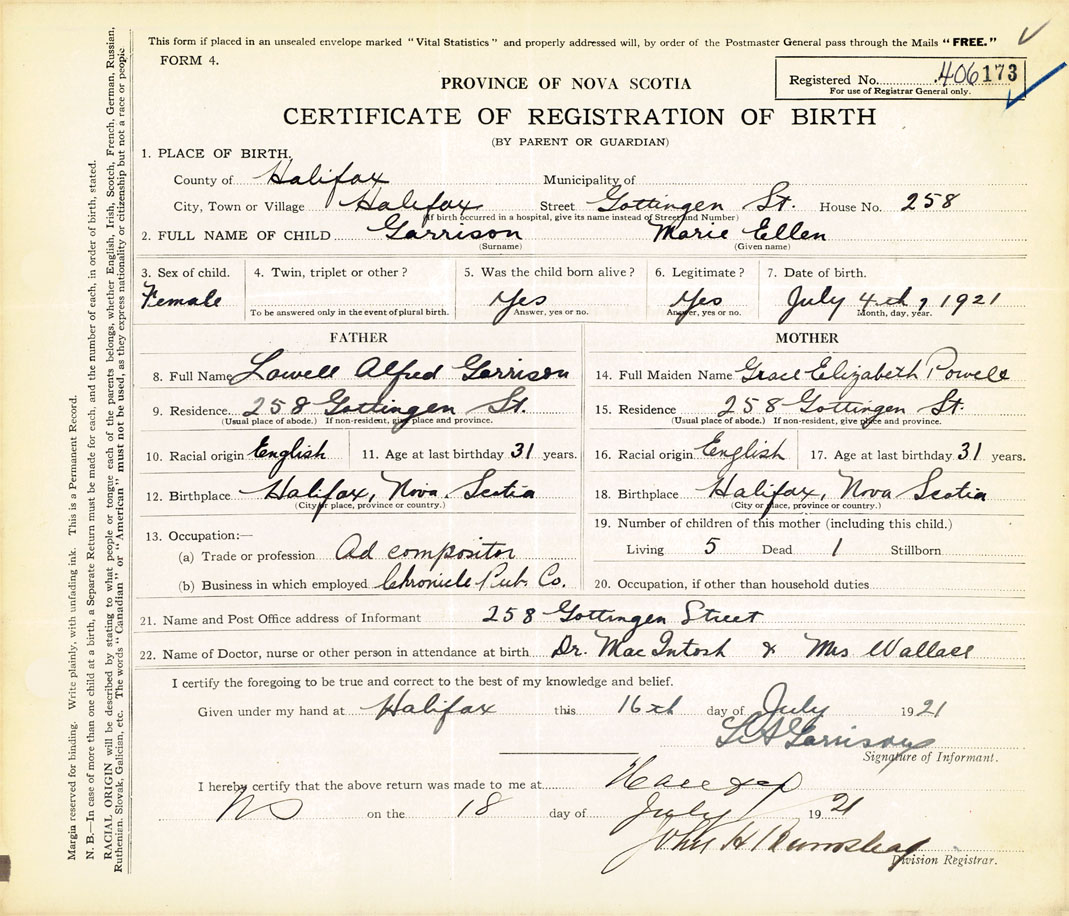 This form if placed in an unsealed envelope marked "Vital Statistics" and properly addressed will, by order of the Postmaster General pass through the Mails "FREE."
FORM 4.
Registered No. 406173
For use of Registrar General only.
PROVINCE OF NOVA SCOTIA
CERTIFICATE OF REGISTRATION OF BIRTH
(BY PARENT OR GUARDIAN)
1. PLACE OF BIRTH.
County of Halifax Municipality of
City, Town or Village Halifax Street Gottingen St. House No. 258
(If birth occurred in a hospital, give its name instead of Street and Number)
2. FULL NAME OF CHILD Garrison Marie Ellen
(Surname) (Given name)
3. Sex of child. 4. Twin, triplet or other? 5. Was the child born alive? 6. Legitimate? 7. Date of birth.
Female Yes Yes July 4th, 1921
To be answered only in the event of plural birth. Answer, yes or no. Answer, yes or no. Month, day, year.
FATHER MOTHER
8. Full Name Lowell Alfred Garrison 14. Full Maiden Name Grace Elizabeth Powell
9. Residence 258 Gottingen St. 15. Residence 258 Gottingen St.
(Usual place of abode.) If non-resident, give place and province. (Usual place of abode.) If non-resident, give place and province.
10. Racial origin English 11. Age at last birthday 31 years. 16. Racial origin English 17. Age at last birthday 31 years.
12. Birthplace Halifax, Nova Scotia 18. Birthplace Halifax, Nova Scotia
(City or place, province or country.) (City or place, province or country.)
13. Occupation:— 19. Number of children of this mother (including this child.)
(a) Trade or profession Ad compositor Living 5 Dead 1 Stillborn
(b) Business in which employed Chronicle Pub. Co. 20. Occupation, if other than household duties
21. Name and Post Office address of Informant 258 Gottingen Street
22. Name of Doctor, nurse or other person in attendance at birth Dr. MacIntosh & Mrs Wallace
I certify the foregoing to be true and correct to the best of my knowledge and belief.
Given under my hand at Halifax this 16th day of July 1921
L A Garrison
Signature of Informant.
I hereby certify that the above return was made to me at
NS on the 18 day of July 1921
John H
Division Registrar.
Margin reserved for binding. Write plainly, with unfading ink. This is a Permanent Record.
N. B.—In case of more than one child at a birth, a Separate Return must be made for each, and the number of each, in order of birth, stated.
RACIAL ORIGIN will be described by stating to what people or tongue each of the parents belongs, whether English, Irish, Scotch, French, German, Russian,
Ruthenian, Slovak, Galician, etc. The words "Canadian" or "American" must not be used, as they express nationality or citizenship but not a race or people